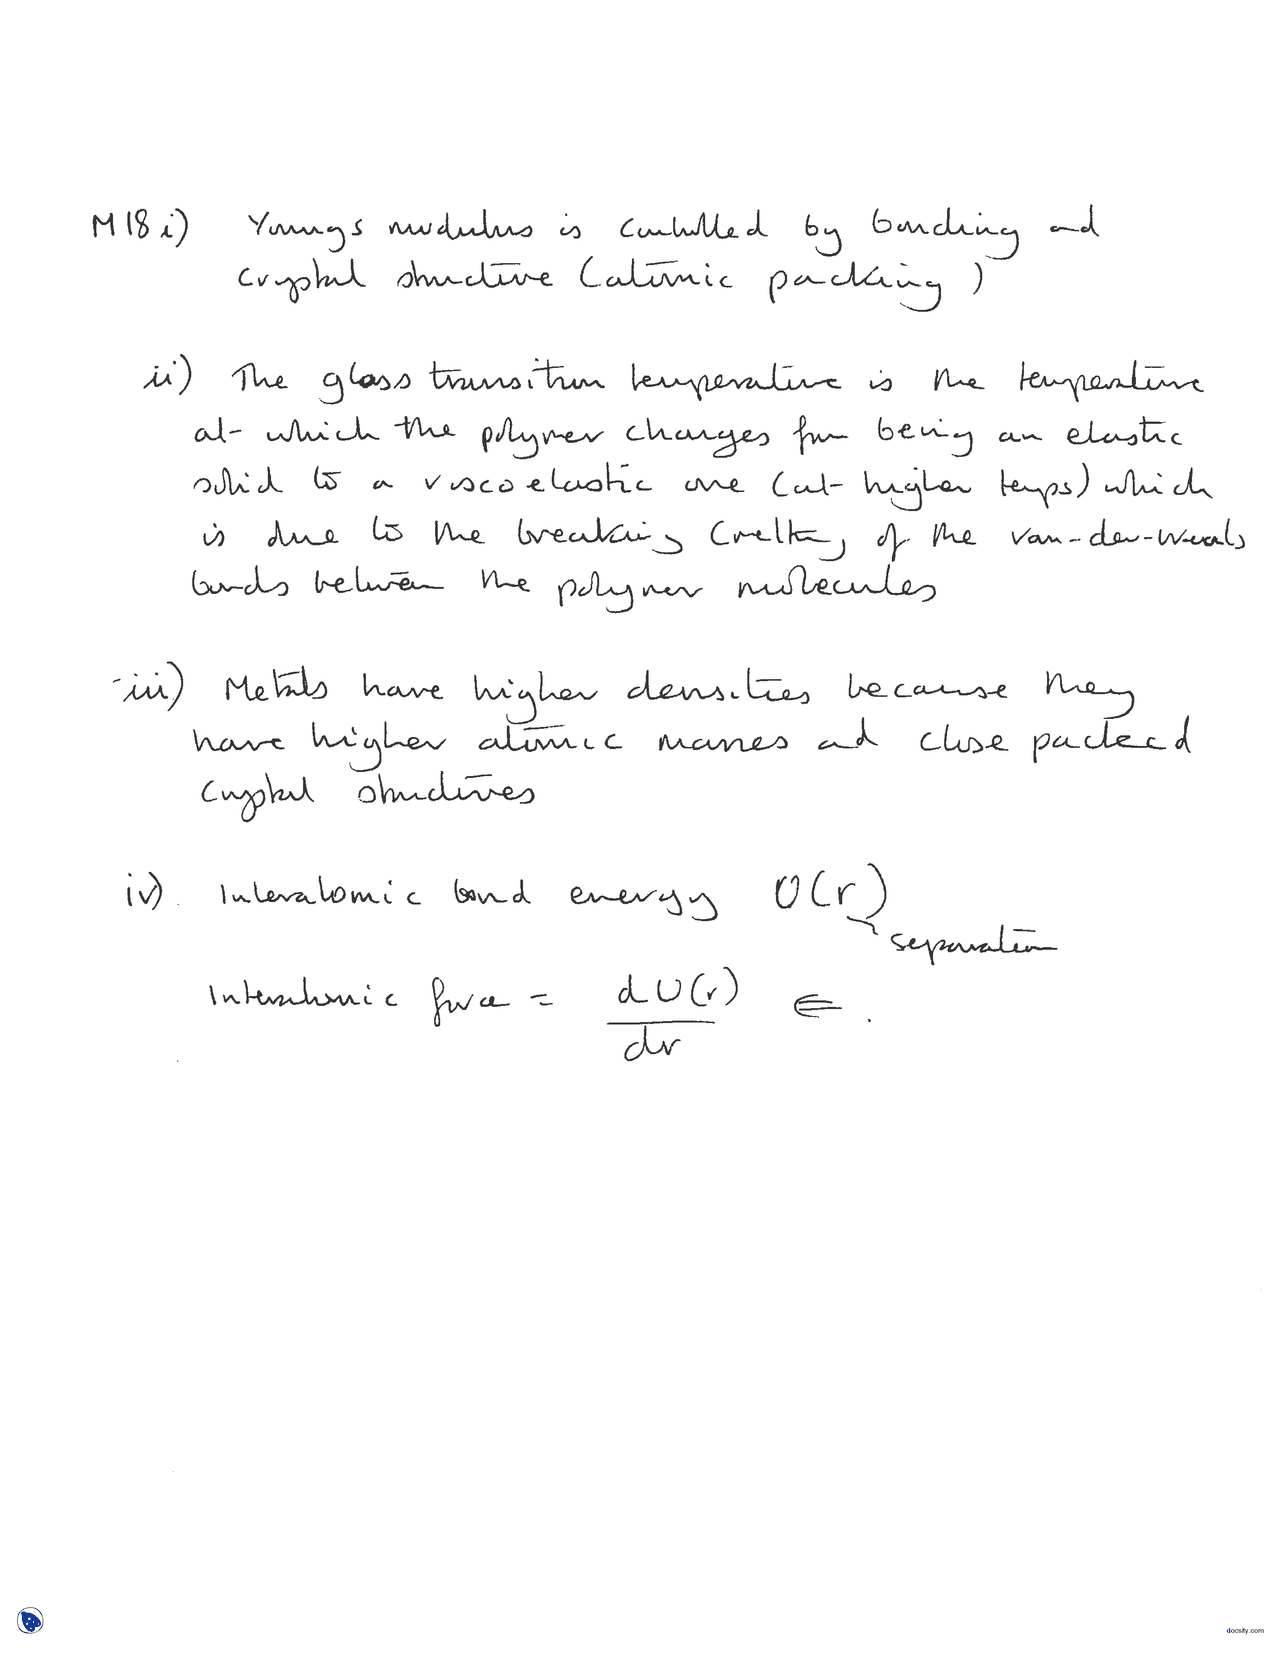 M18 i) Youngs modulus is controlled by bonding and
crystal structure (atomic packing)
ii) The glass transition temperature is the temperature
at which the polymer changes from being an elastic
solid to a viscoelastic one (at higher temps) which
is due to the breaking (melting) of the van-der-Waals
bonds between the polymer molecules
iii) Metals have higher densities because they
have higher atomic masses and close packed
crystal structures
iv) Interatomic bond energy U(r)
separation
Interatomic force = dU(r) ⇐
dr
docsity.com